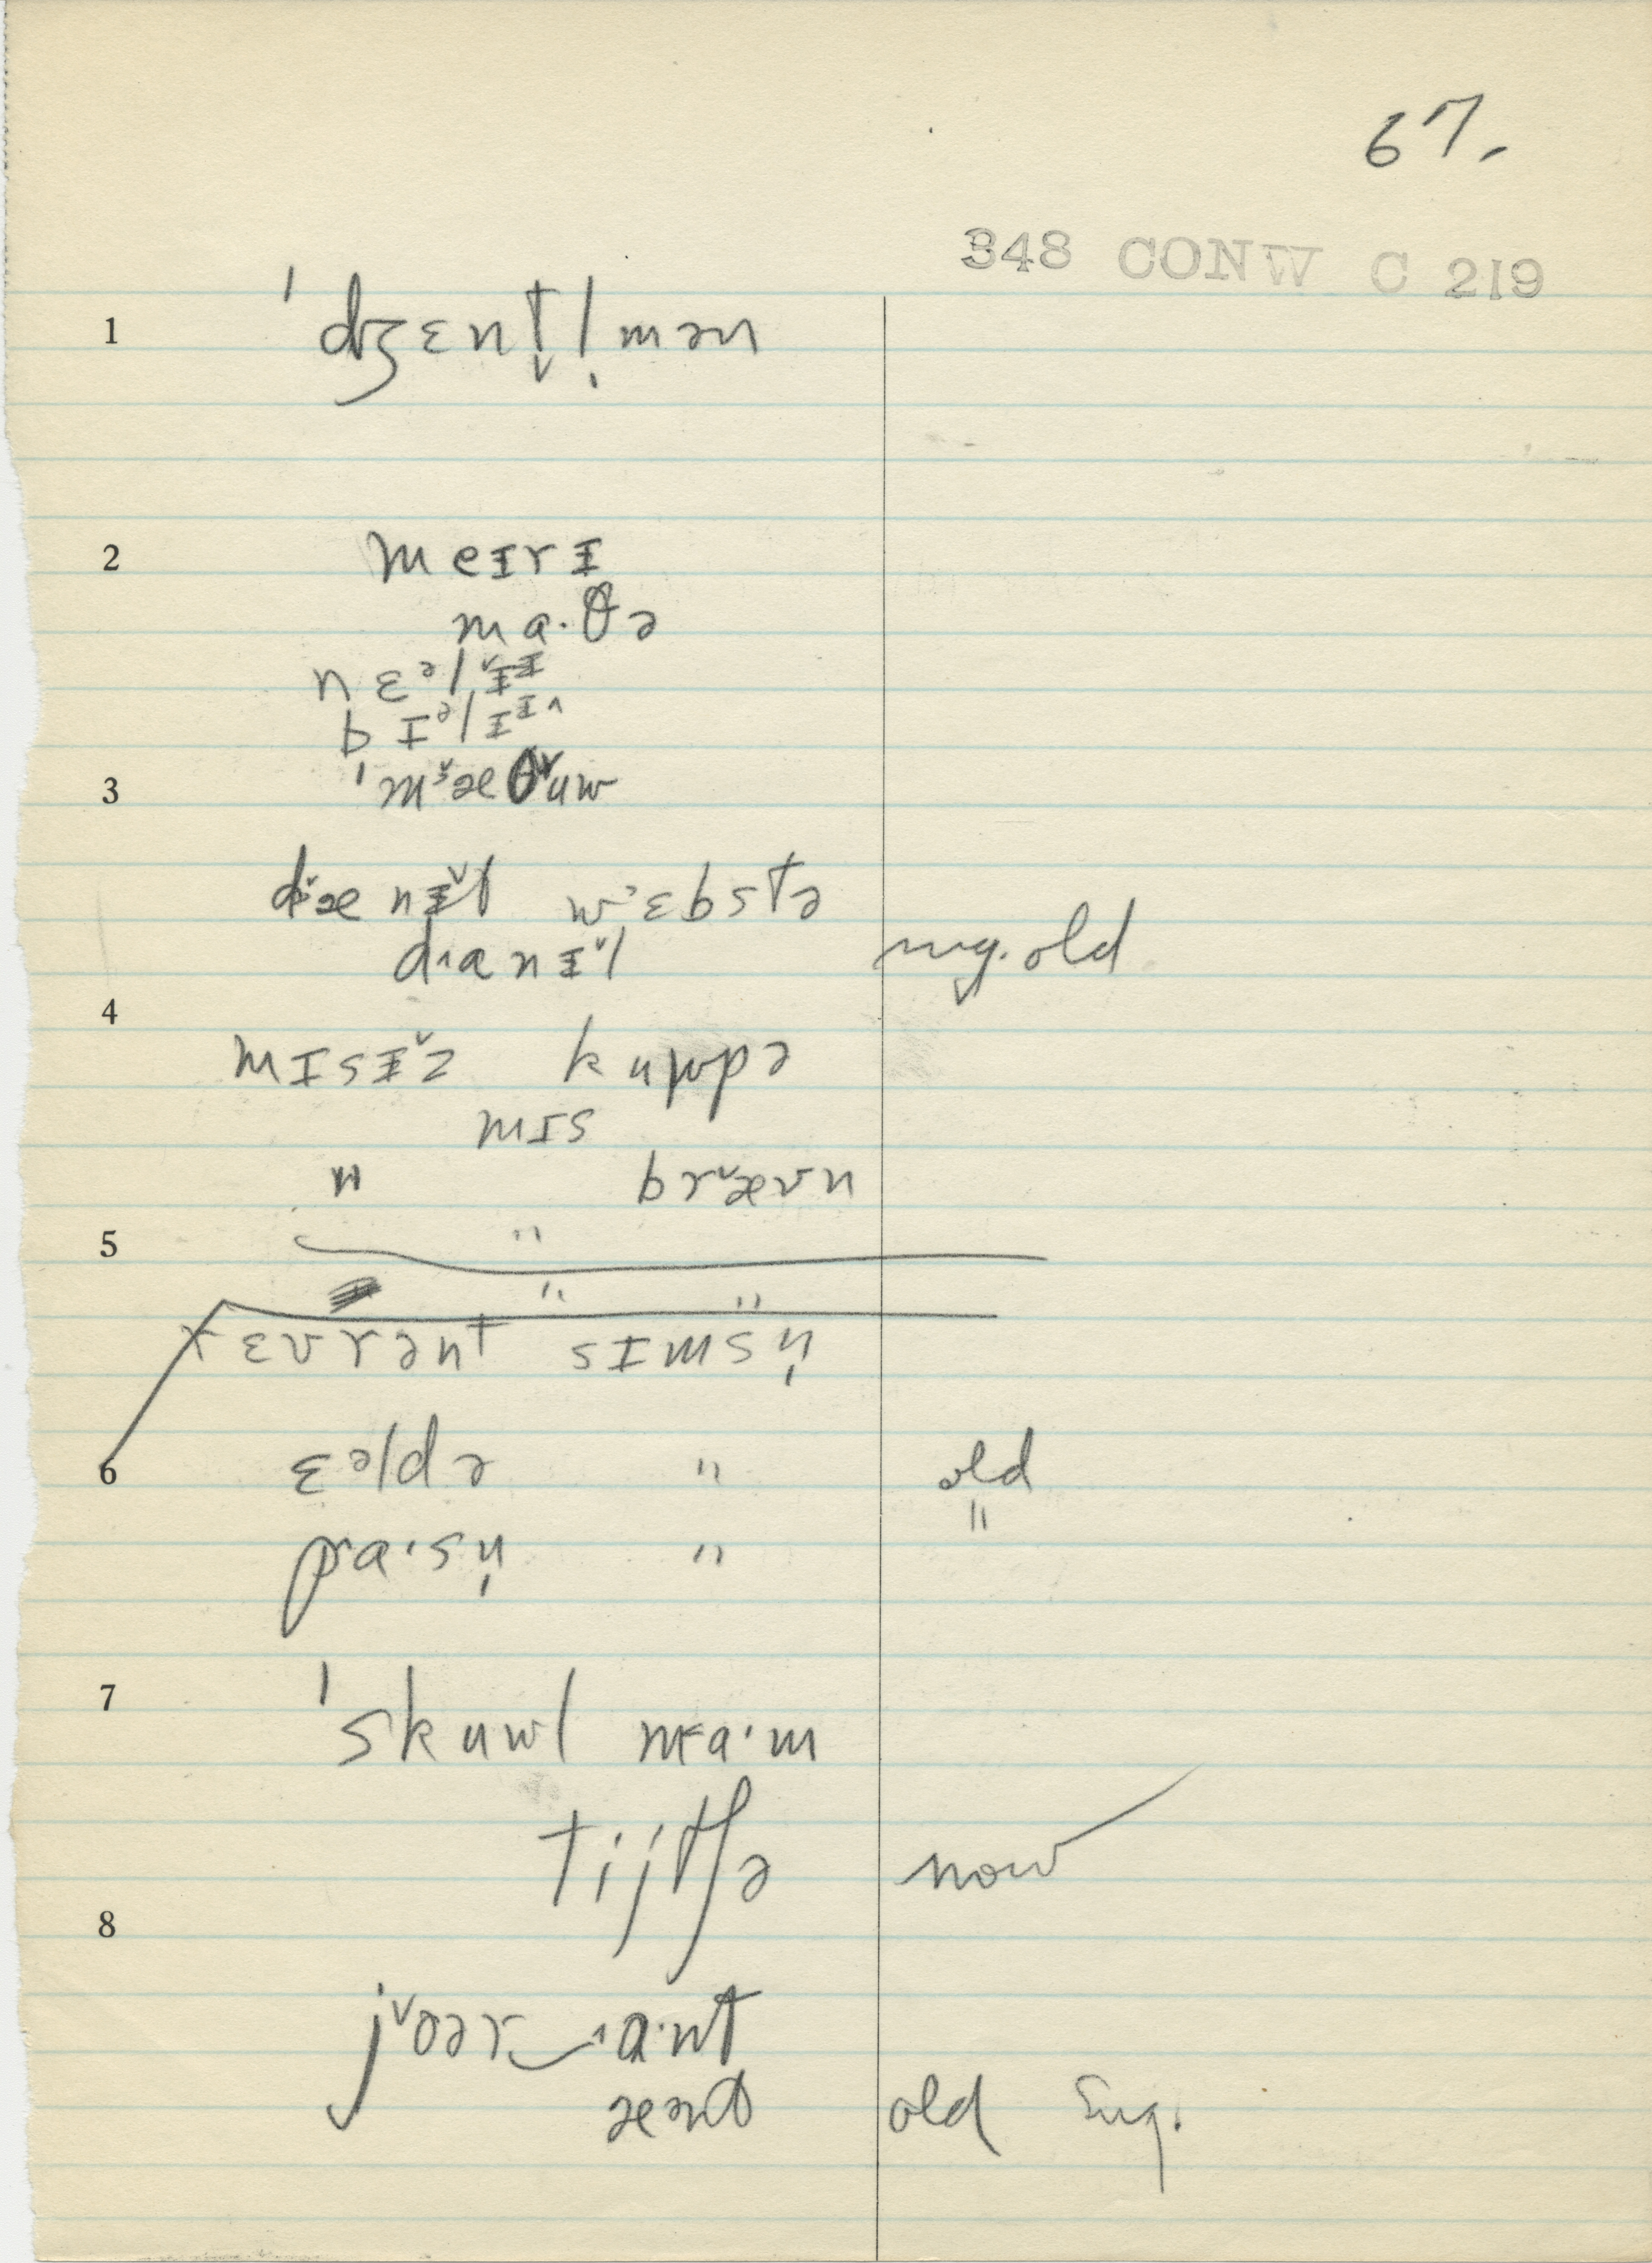 67.
348 CONW C 219
1 ˈdʒɛnt̬l̩mən
2 meɪrɪ
ma·θə
nɛᵊlɪ̌ᴵ
bɪᵊlɪᴵ^
3 ˈmˇæθˇuw
dˇænɪ̵ˇl wˈɛbstə
d^anɪ̵ˇl old
4 mɪsɪ̵ˇz kuwpə
mɪs
" brˇæʊn
5 "
" "
rɛvrənt sɪmsn̩
6 ɛᵊldə " old
pa·sn̩ " "
7 ˈskuwl ma·m
tijtʃə now
8 jˇoər‿^a·nt
æənt old Eng.